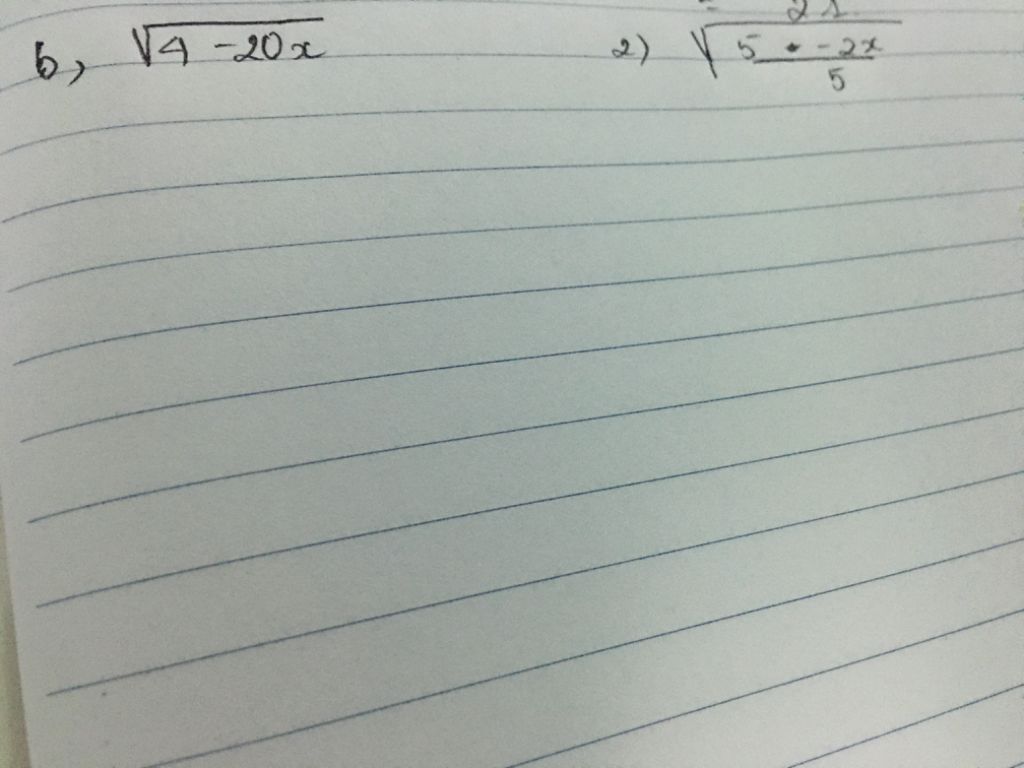 b, √4 -20x
2) √5 • -2x
5